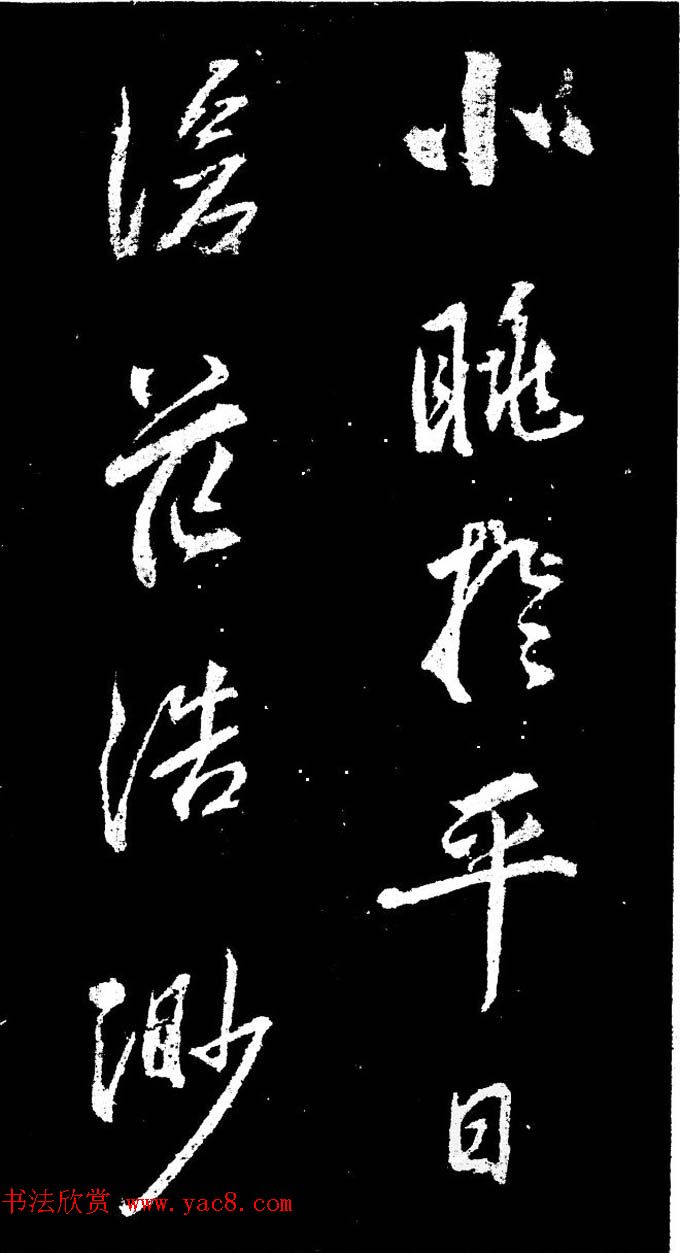 眺於平日
滄茫浩渺
书法欣赏 www.yac8.com